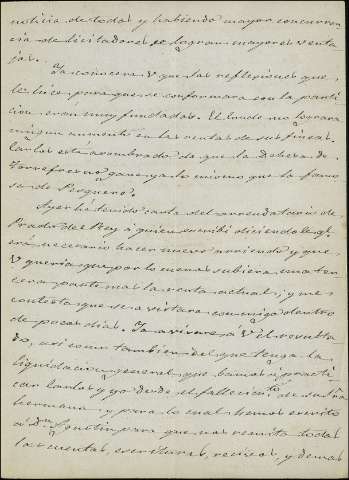 noticia de todos y habiendo mayor concurren
cia de licitadores se logran mayores venta
jas.
Ya conocera V que las reflexiones que
le hice para que se conformara con la parti
cion eran muy fundadas. El Conde no lograra
ningun aumento en las rentas de sus fincas.
Carlos está asombrado de que la Dehesa de
Torrefresno gane ya lo mismo que la famo
sa de Pesquero.
Ayer hé tenido carta del arrendatario de
Prado del Rey á quien escribi diciendole qe
era necesario hacer nuevo arriendo y que
V queria que por lo menos subiera una ter
cera parte mas la renta actual, y me
contesta que se avistara conmigo dentro
de pocos dias. Ya avisaré á V el resulta
do, asi como tambien del que tenga la
liquidacion general que vamos a practi
car Carlos y yo desde el fallecimto de su Sra
hermana, y para lo cual hemos escrito
á Dn para que nos remita todas
las cuentas, escrituras, recivos, y demas